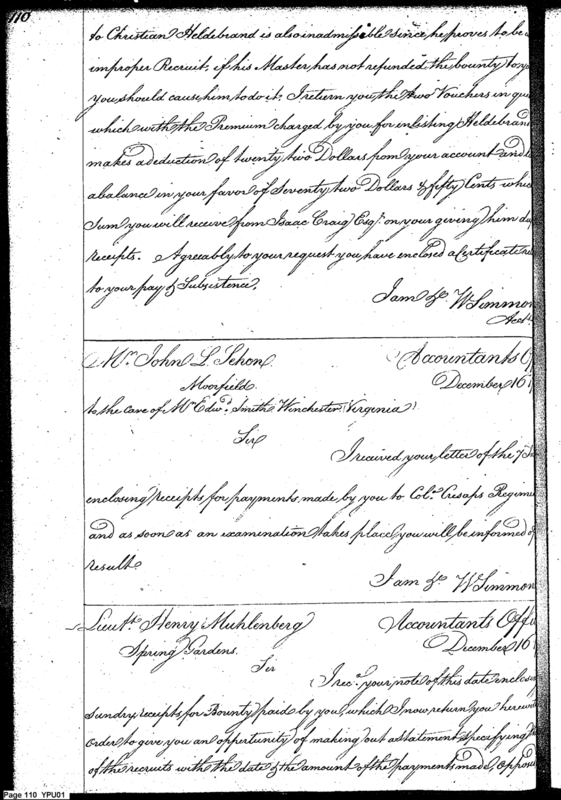 110
to Christian Heldebrand is also inadmissible since he proves to be a
improper Recruit, if his Master has not refunded the bounty to yo
you should cause him to do it. I return you the two Vouchers in que
which with the Premium charged by you for enlisting Heldebrand
makes a deduction of twenty two Dollars from your account and
a balance in your favor of Seventy two Dollars & fifty Cents which
Sum you will receive from Isaac Craig Esqr. on your giving him du
receipts. Agreably to your request you have enclosed a Certificate
to your pay & Subsistence.
I am &c. W Simmon
Acctt
Mr. John L. Sehon
Accountants Of
Moorfield.
December 16
to the care of Mr Edwd. Smith Winchester Virginia
Sir
I received your letter of the 7th
enclosing receipts for payments made by you to Colo. Cresaps Regime
and as soon as an examination takes place you will be informed of
result.
I am &c. W Simmon
Lieutt. Henry Muhlenberg
Accountants Offi
Spring Gardens.
December 16
Sir
I recd. your note of this date enclos
sundry receipts for Bounty paid by you, which I now return you herew
order to give you an oppertunity of making out a statement specifying
of the recruits with the date & the amount of the payments made, oppos
Page 110 YPU01